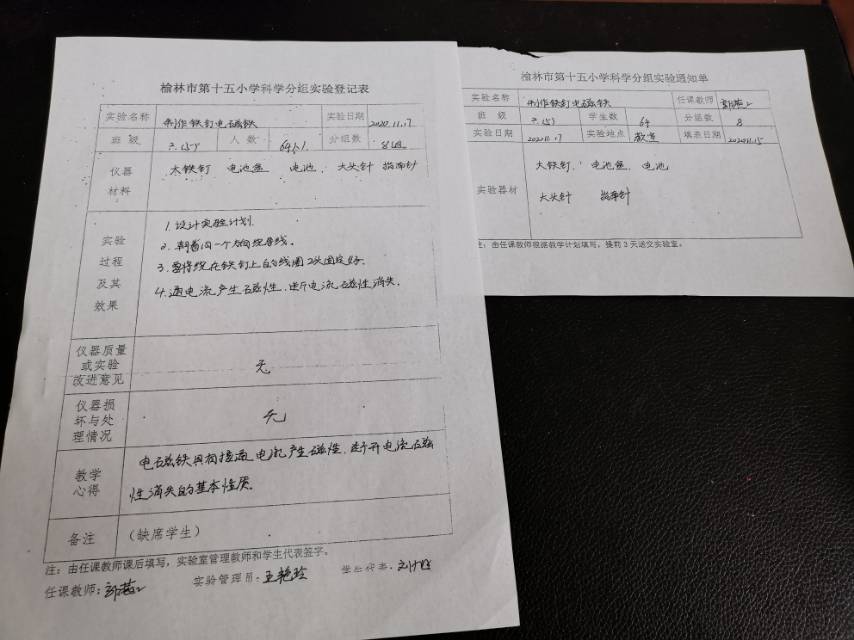 榆林市第十五小学科学分组实验登记表
实验名称 制作铁钉电磁铁 实验日期 2020.11.17
班级 人数 64人 分组数 8组
仪器材料 大铁钉 电池盒 电池、大头针 指南针
实验过程及其效果
1.设计实验计划.
2.朝着同一个方向绕导线。
3.要将绕在铁钉上的线圈2头固定好.
4.通电流产生磁性.断电流磁性消失.
仪器质量或实验改进意见 无
仪器损坏与处理情况 无
教学心得
电磁铁具有接通电流产生磁性.断开电流磁
性消失的基本性质。
备注 (缺席学生)
注：由任课教师课后填写，实验室管理教师和学生代表签字。
任课教师： 实验管理员： 学生代表：
榆林市第十五小学科学分组实验通知单
实验名称 制作铁钉电磁铁 任课教师
班级 学生数 64 分组数 8
实验日期 实验地点 教室 填表日期
实验器材
大铁钉、电池盒、电池
大头针 指南针
注：由任课教师根据教学计划填写，提前3天送交实验室。